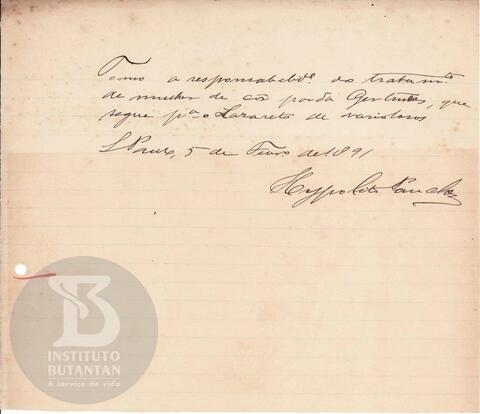 Tomo a responsabelide. do tratamto.
de mulher de côr parda Gertrudes, que
segue pa. o Lazareto de variolosos
S. Paulo, 5 de Fevro de 1891
Hyppolito
INSTITUTO
BUTANTAN
A serviço da vida